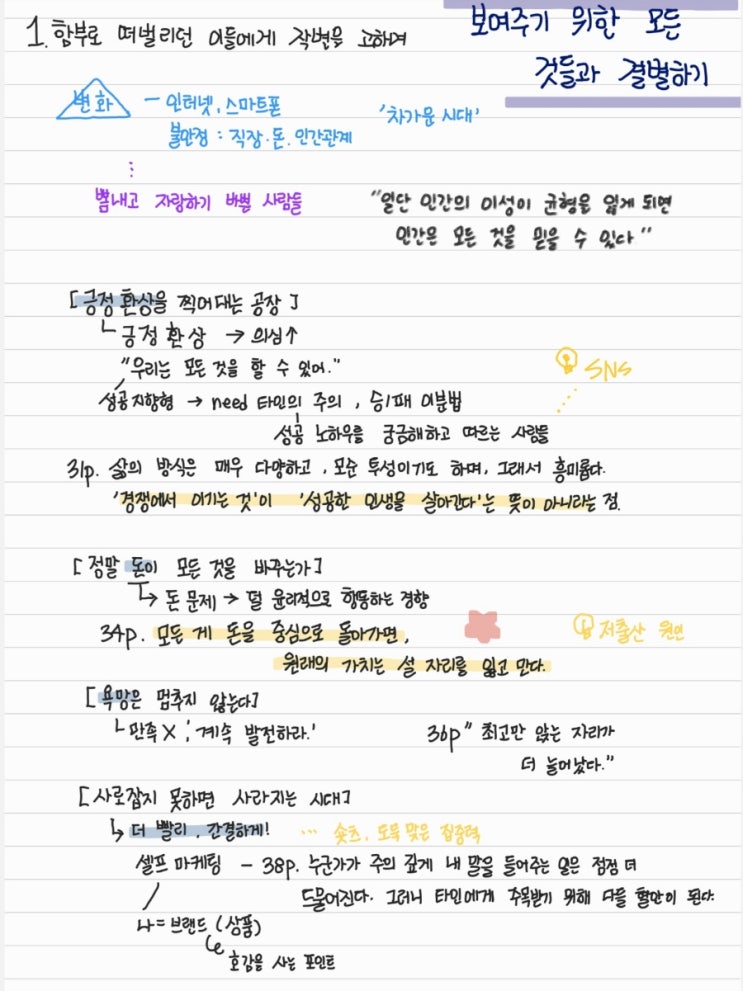 보여주기 위한 모든
것들과 결별하기
1. 함부로 떠벌리던 이들에게 작별을 고하며
변화 - 인터넷, 스마트폰
'차가운 시대'
불안정 : 직장·돈·인간관계
⋮
뽐내고 자랑하기 바쁜 사람들
"일단 인간의 이성이 균형을 잃게 되면
인간은 모든 것을 믿을 수 있다"
[긍정 환상을 찍어대는 공장]
└ 긍정 환상 → 의심↑
"우리는 모든 것을 할 수 있어."
SNS
성공지향형 → need 타인의 주의, 승/패 이분법
성공 노하우를 궁금해하고 따르는 사람들
31p. 삶의 방식은 매우 다양하고, 모순 투성이기도 하며, 그래서 흥미롭다.
'경쟁에서 이기는 것'이 '성공한 인생을 살아간다'는 뜻이 아니라는 점.
[정말 돈이 모든 것을 바꾸는가]
↳ 돈 문제 → 덜 윤리적으로 행동하는 경향
34p. 모든 게 돈을 중심으로 돌아가면,
저출산 원인
원래의 가치는 설 자리를 잃고 만다.
[욕망은 멈추지 않는다]
└ 만족 X, '계속 발전하라.'
36p " 최고만 앉는 자리가
더 늘어났다."
[사로잡지 못하면 사라지는 시대]
↳ 더 빨리, 간결하게! … 숏츠, 도둑 맞은 집중력
셀프 마케팅 - 38p. 누군가가 주의 깊게 내 말을 들어주는 일은 점점 더
드물어진다. 그러니 타인에게 주목받기 위해 다들 혈안이 된다.
나 = 브랜드 (상품)
↳ 호감을 사는 포인트